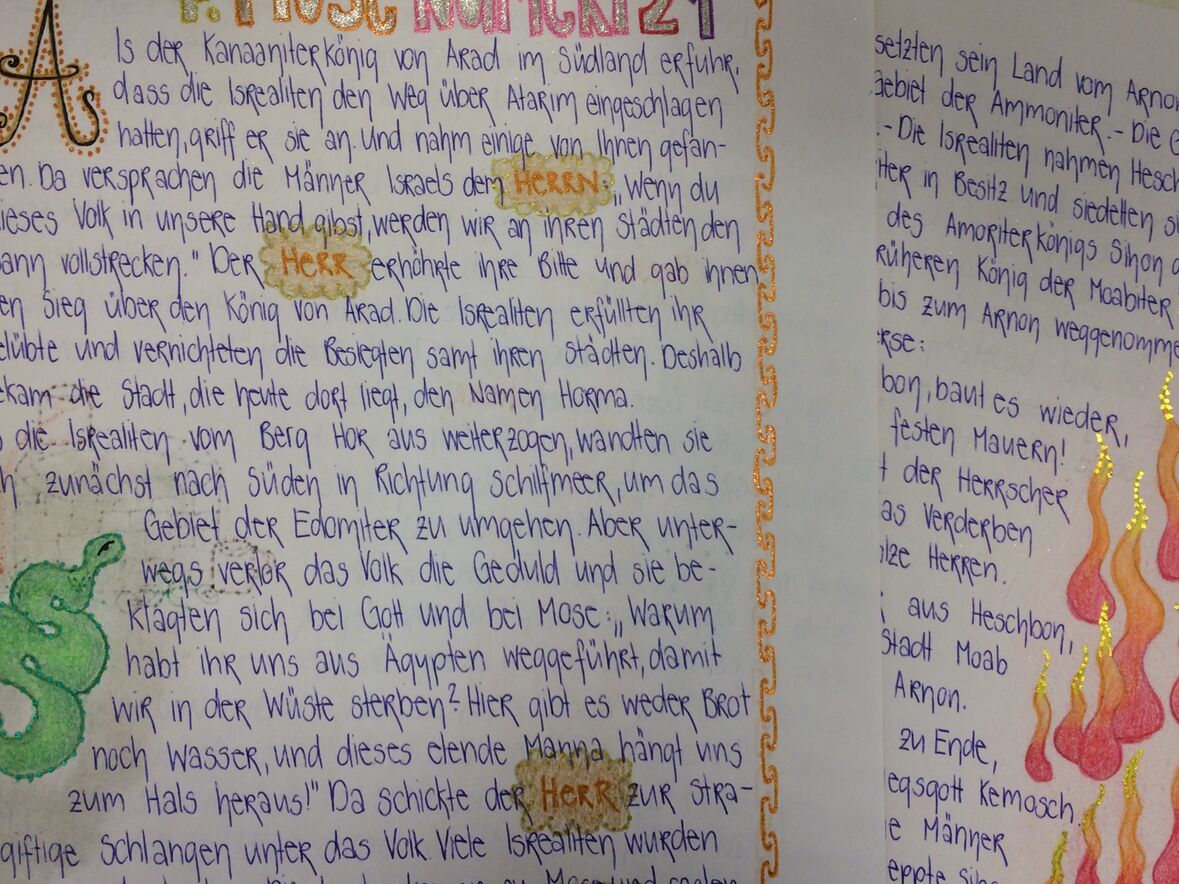 4. Mose Numeri 21
Als der Kanaaniterkönig von Arad im Südland erfuhr,
dass die Isrealiten den Weg über Atarim eingeschlagen
hatten, griff er sie an. Und nahm einige von Ihnen gefan-
en. Da versprachen die Männer Israels dem HERRN: „Wenn du
ieses Volk in unsere Hand gibst, werden wir an ihren Städten den
ann vollstrecken." Der HERR erhöhrte ihre Bitte und gab ihnen
en Sieg über den König von Arad. Die Isrealiten erfüllten ihr
elübte und vernichteten die Besiegten samt ihren Städten. Deshalb
ekam die Stadt, die heute dort liegt, den Namen Horma.
die Isrealiten vom Berg Hor aus weiterzogen, wandten sie
h zunächst nach Süden in Richtung Schilfmeer, um das
Gebiet der Edomiter zu umgehen. Aber unter-
wegs verlor das Volk die Geduld und sie be-
klagten sich bei Gott und bei Mose: „Warum
habt ihr uns aus Ägypten weggeführt, damit
wir in der Wüste sterben? Hier gibt es weder Brot
noch Wasser, und dieses elende Manna hängt uns
zum Hals heraus!" Da schickte der HERR zur Stra-
giftige Schlangen unter das Volk. Viele Isrealiten wurden
setzten sein Land vom Arnon
Gebiet der Ammoniter.- Die G
.- Die Isrealiten nahmen Hesch
iter in Besitz und siedelten s
des Amoriterkönigs Sihon
rüheren König der Moabiter
bis zum Arnon weggenomme
rse:
bon, baut es wieder,
festen Mauern!
t der Herrscher
as Verderben
olze Herren.
aus Heschbon,
Stadt Moab
Arnon.
zu Ende,
egsgott Kemosch.
e Männer